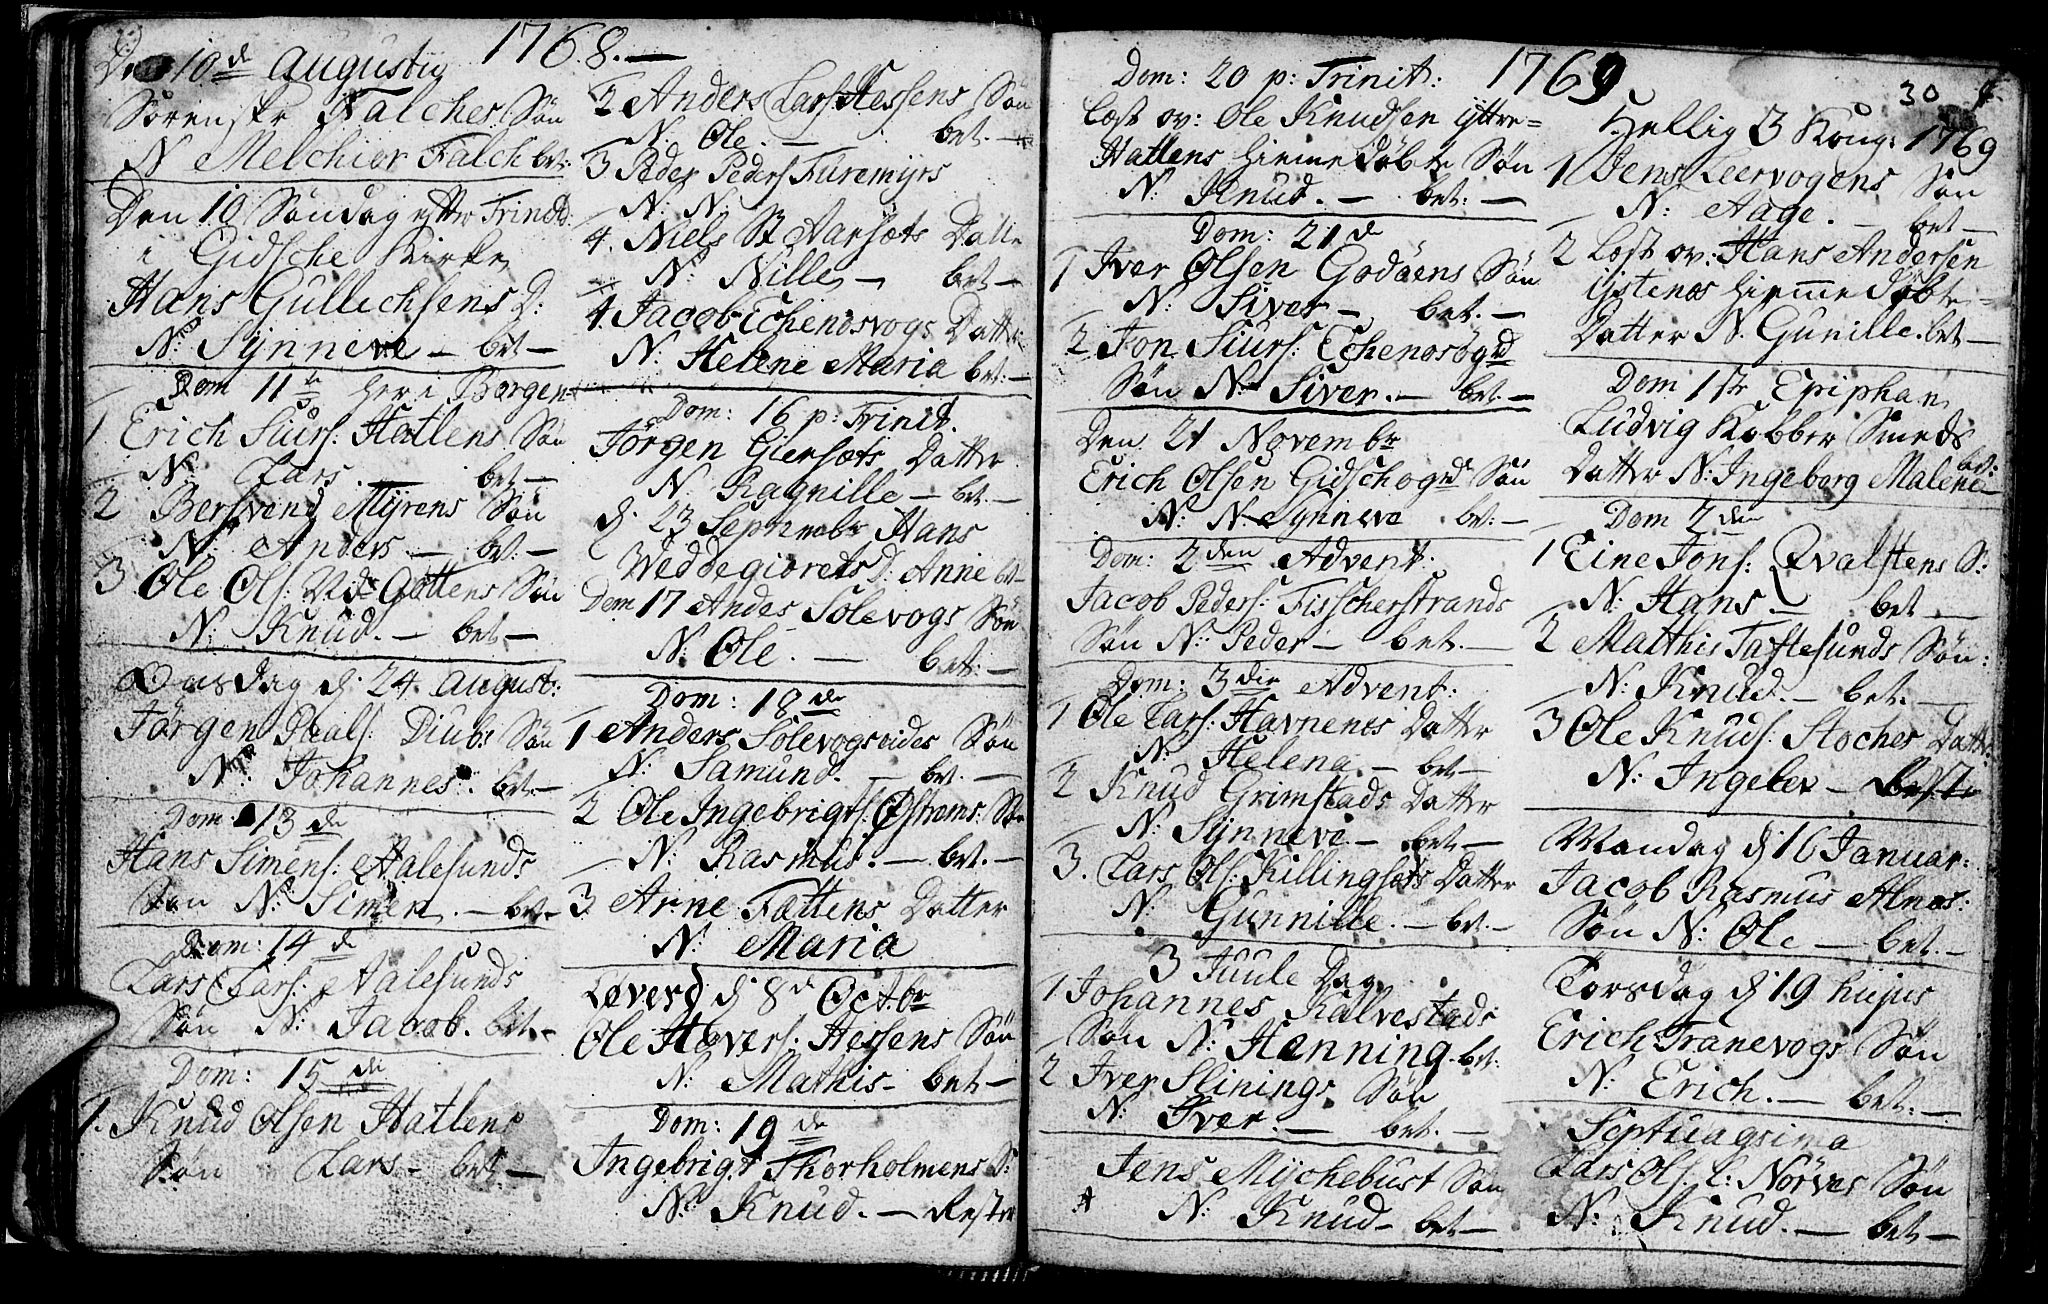 1768.
10de Augusti
Sörenskr Falches Sön
N Melchior Falch bet:
Den 10 Söndag efter Trinit:
i Gidsche Kirke
Hans Gullichsens D:
N: Synneve — bet —
Dom 11te her i Borgen
1 Erich Siurs: Hatlens Sön
N: Lars. — bet —
2 Bersvend Myrens Sön
N: Anders — bet: —
3 Ole Ols: Gottens Sön
N: Knud. — bet —
Onsdag d: 24 August:
Jörgen Paals: Diubs Sön
N: Johannes. bet —
Dom: 13de
Hans Simens: Aalesunds
Sön N: Simen. — bet —
Dom: 14de
Lars Lars: Aalesunds
Sön N: Jacob. bet —
Dom: 15de
1. Knud Olsen Hatlens
Sön Lars — bet —
2 Anders Lars: Hessens Sön
N: Ole. — bet. —
3 Peder Peders Furemyrs
N: N:
4. Niels Aarsæts Datte
N: Nille — bet —
4 Jacob Echenosvogs Datter
N: Helene Maria bet: —
Dom: 16 p: Trinit.
Jörgen Giersæts Datter
N: Ragnille — bet. —
d. 23 Septembr Hans
Weddegiorets D: Anne bet —
Dom 17 Andes Solevogs Sön
N: Ole. — bet: —
Dom: 18de
1 Anders Solevogseides Sön
N: Samund. — bet. —
2 Ole Ingebrigts: Østrems: Sön
N: Rasmus. — bet. —
3 Arne Fattens Datter
N: Maria
Løverd d 8de Octobr
Ole Havers: Hessens Sön
N: Mathis — bet —
Dom: 19de
Ingebrigt Thorholmens S:
N: Knud. — Rester
1769
30
Dom: 20 p: Trinit:
Læst ov: Ole Knudsen yttre=
Hatlens hiemedöbte Sön
N: Knud. — bet: —
Dom: 21de
1 Iver Olsen Godöens Sön
N: Siver — bet. —
2 Jon Siurs: Echenosögrd
Sön N: Siver. — bet. —
Den 21 Novembr
Erich Olsen Gidschogrd Sön
N: N: Synneve bet: —
Dom: 2den Advent:
Jacob Peders: Fisscherstrands
Sön N: Peder — bet. —
Dom: 3die Advent:
1 Ole Lars: Havnenes Datter
N: Helena — bet —
2 Knud Grimstads Datter
N: Synneve — bet —
3. Lars Ols: Killingsæts Datter
N: Gunnille. — bet —
3 Juule Dag.
1 Johannes Kalvestads
Sön N: Henning bet:
2 Iver Slinings Sön
N: Iver — bet. —
Jens Mychebust Sön
N: Knud — bet —
Hellig 3 Kong: 1769
1 Jens Leervogens Sön
N: Aage. — bet —
2 Læst ov: Hans Andersen
ystenæs hiemmedöbte=
Datter N. Gunille. bet —
Dom 1ste Epiphan
Ludvig Kobber Smeds
bet:
Datter N: Ingeborg Malene —
Dom 2den
1 Eine Jons: Qvalstens S:
N: Hans — bet —
2 Matthis Taftesunds Sön:
N: Knud. — bet. —
3 Ole Knuds. Stoches Datte:
N: Ingeber —
Mandag d: 16 Januar:
Jacob Rasmus Alnes:
Sön N: Ole — bet. —
Torsdag d: 19 hujus
Erich Tranevogs Sön
N: Erich. — bet. —
Septuagsima
Lars Ols: l: Nörves Sön
N: Knud. — bet —